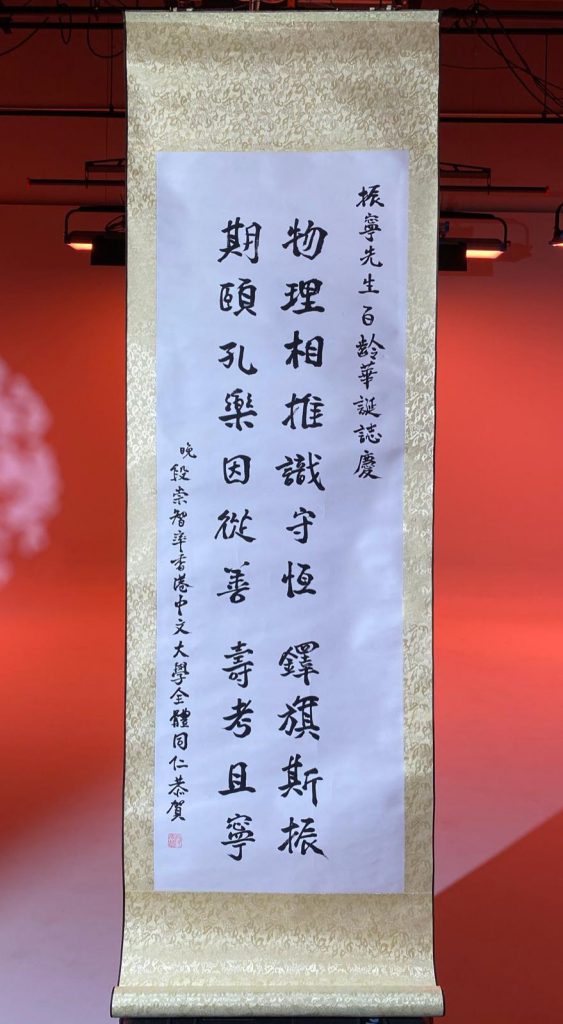 振寧先生百齡華誕誌慶
物理相推識守恆 鐸旗斯振
期頤孔樂因從善 壽考且寧
晚 段崇智率香港中文大學全體同仁恭賀